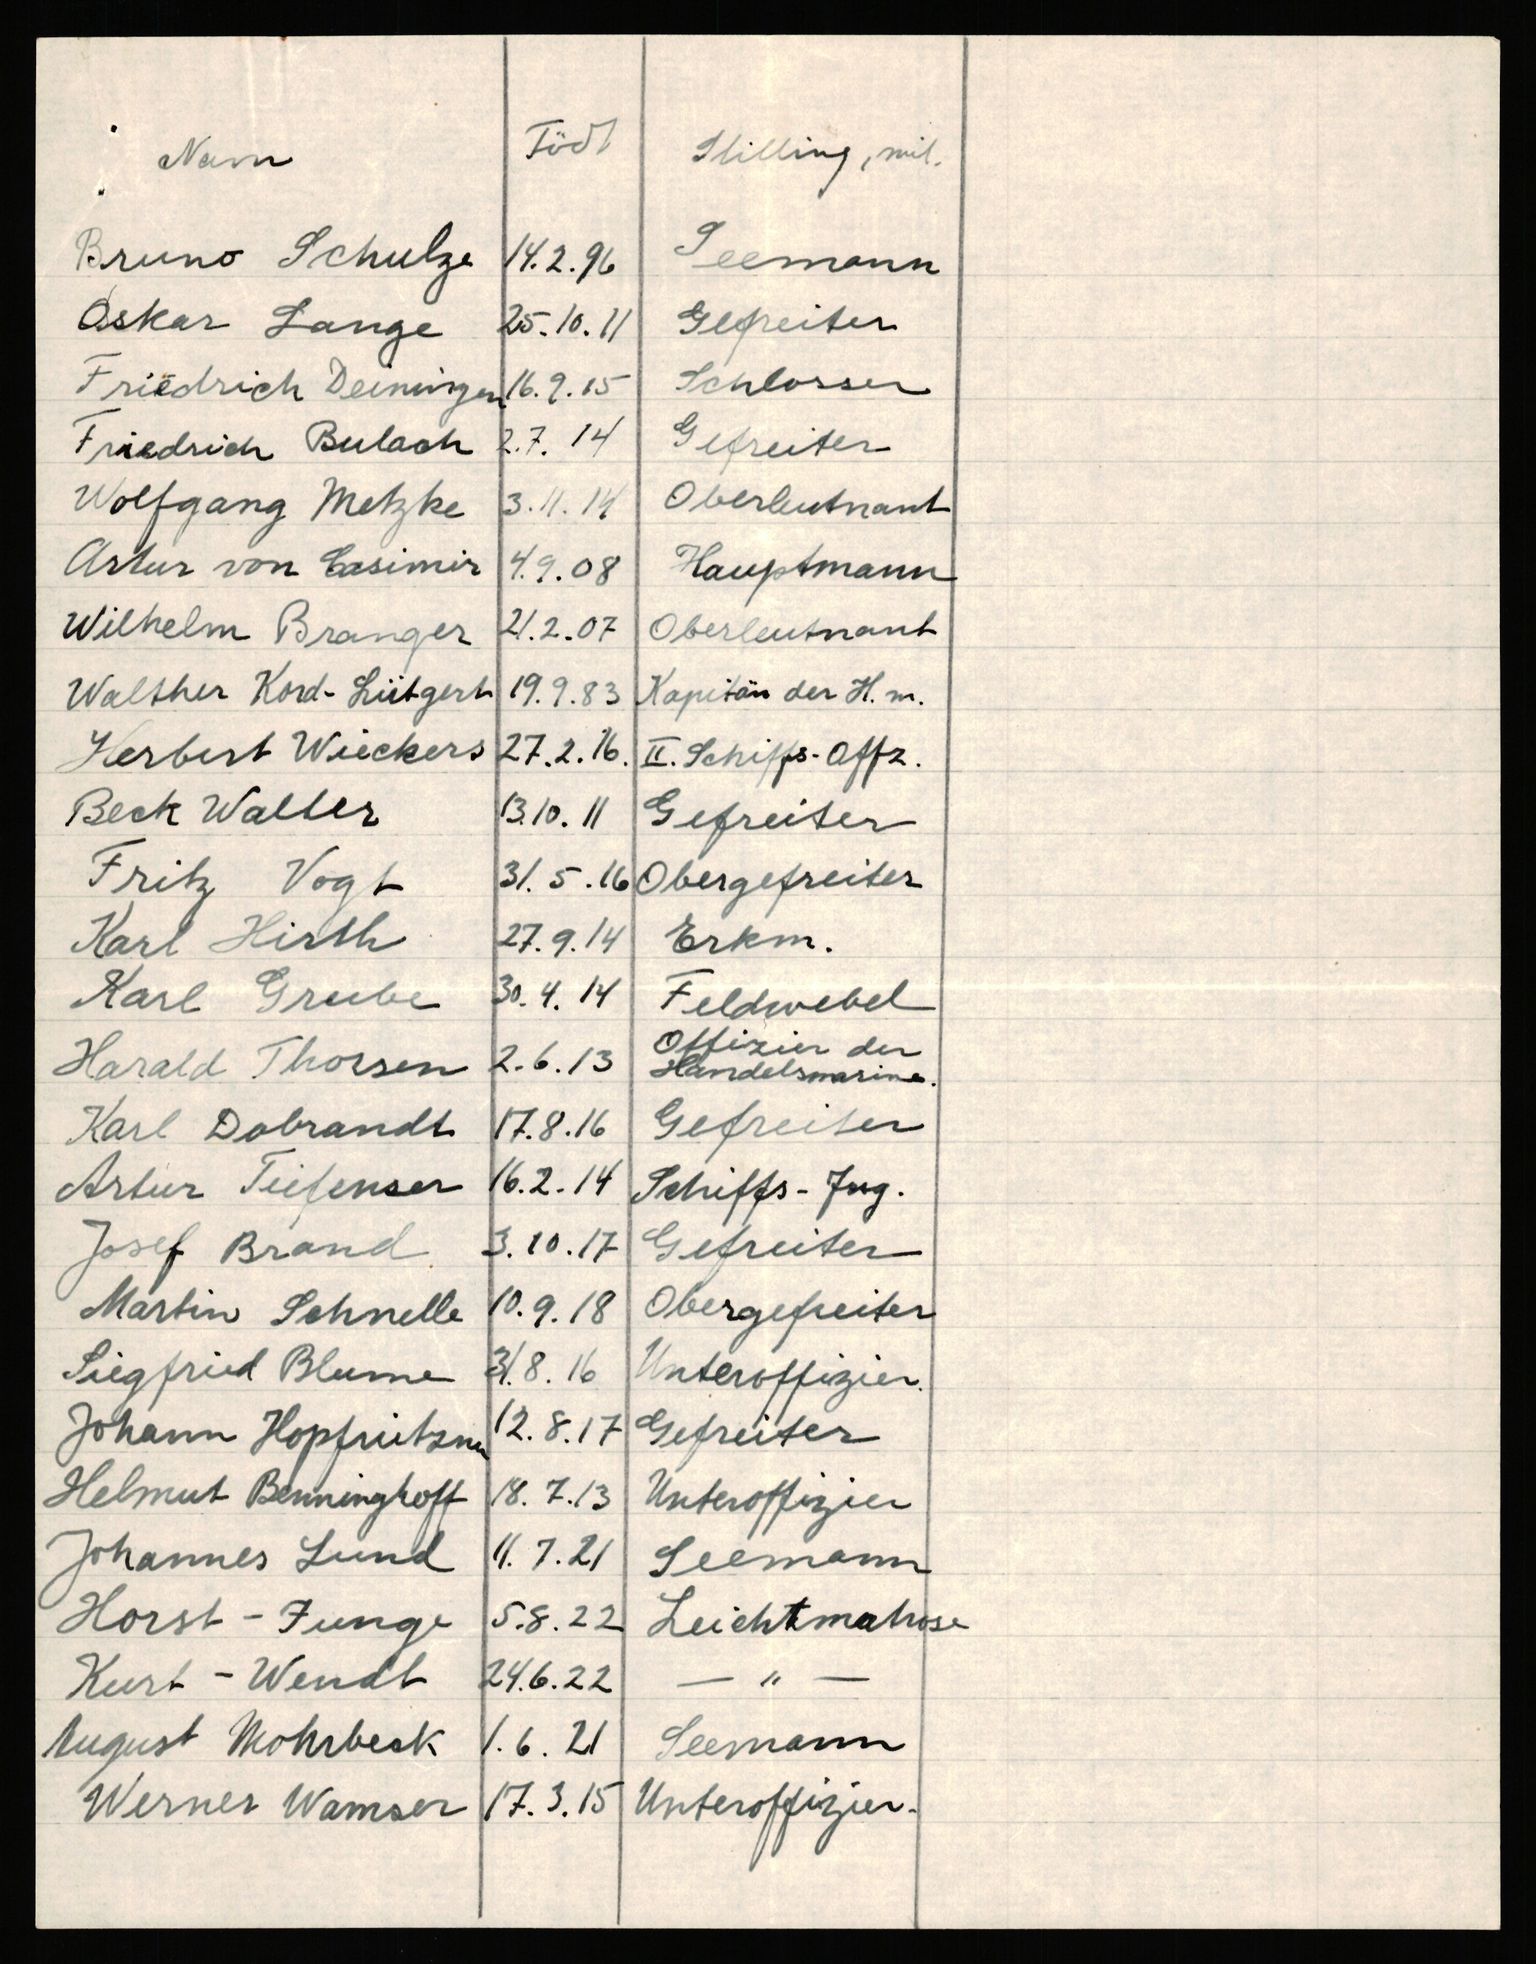 Navn Född Stilling, mil.
Bruno Schulze 14.2.96 Seemann
Oskar Lange 25.10.11 Gefreiter
Friedrich Deininger 16.9.15 Schlosser
Friedrich Bulach 2.7.14 Gefreiter
Wolfgang Metzke 3.11.14 Oberleutnant
Artur von Casimir 4.9.08 Hauptmann
Wilhelm Branger 21.2.07 Oberleutnant
Walther Kord-Lütgert 19.9.83 Kapitän der H.m.
Herbert Wieckers 27.2.16. II. Schiffs-Offz.
Beck Walter 13.10.11 Gefreiter
Fritz Vogt 31.5.16 Obergefreiter
Karl Hirth 27.9.14 Erkm.
Karl Grube 30.4.14 Feldwebel
Harald Thorsen 2.6.13 Offizier der
Handelsmarine.
Karl Dobrandt 17.8.16 Gefreiter
Artur Tiefenser 16.2.14 Schiffs-Jng.
Josef Brand 3.10.17 Gefreiter
Martin Schnelle 10.9.18 Obergefreiter
Siegfried Blume 31.8.16 Unteroffizier.
Johann 12.8.17 Gefreiter
Helmut Benninghoff 18.7.13 Unteroffizier
Johannes Lund 11.7.21 Seemann
Horst - Junge 5.8.22 Leichtmatrose
Kurt - Wendt 24.6.22 — " —
August Mohrbeck 1.6.21 Seemann
Werner Wamser 17.3.15 Unteroffizier.